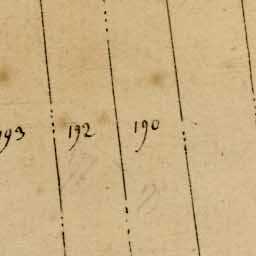 193 192 190